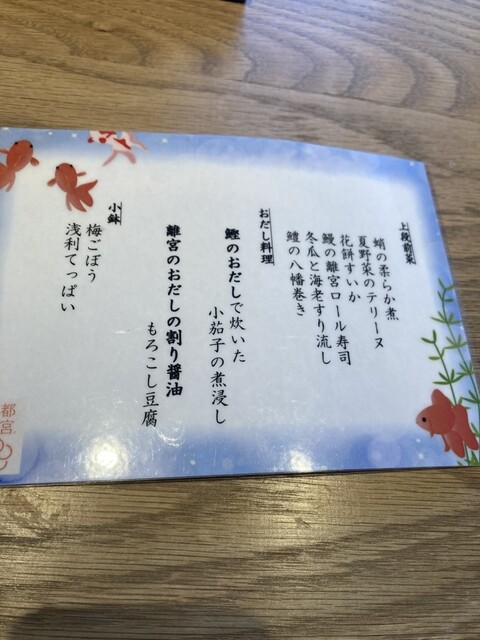 上段前菜
蛸の柔らか煮
夏野菜のテリーヌ
花餅すいか
鰻の離宮ロール寿司
冬瓜と海老すり流し
鱧の八幡巻き
おだし料理
鰹のおだしで炊いた
小茄子の煮浸し
離宮のおだしの割り醤油
もろこし豆腐
小鉢
梅ごぼう
浅利てっぱい
都宮